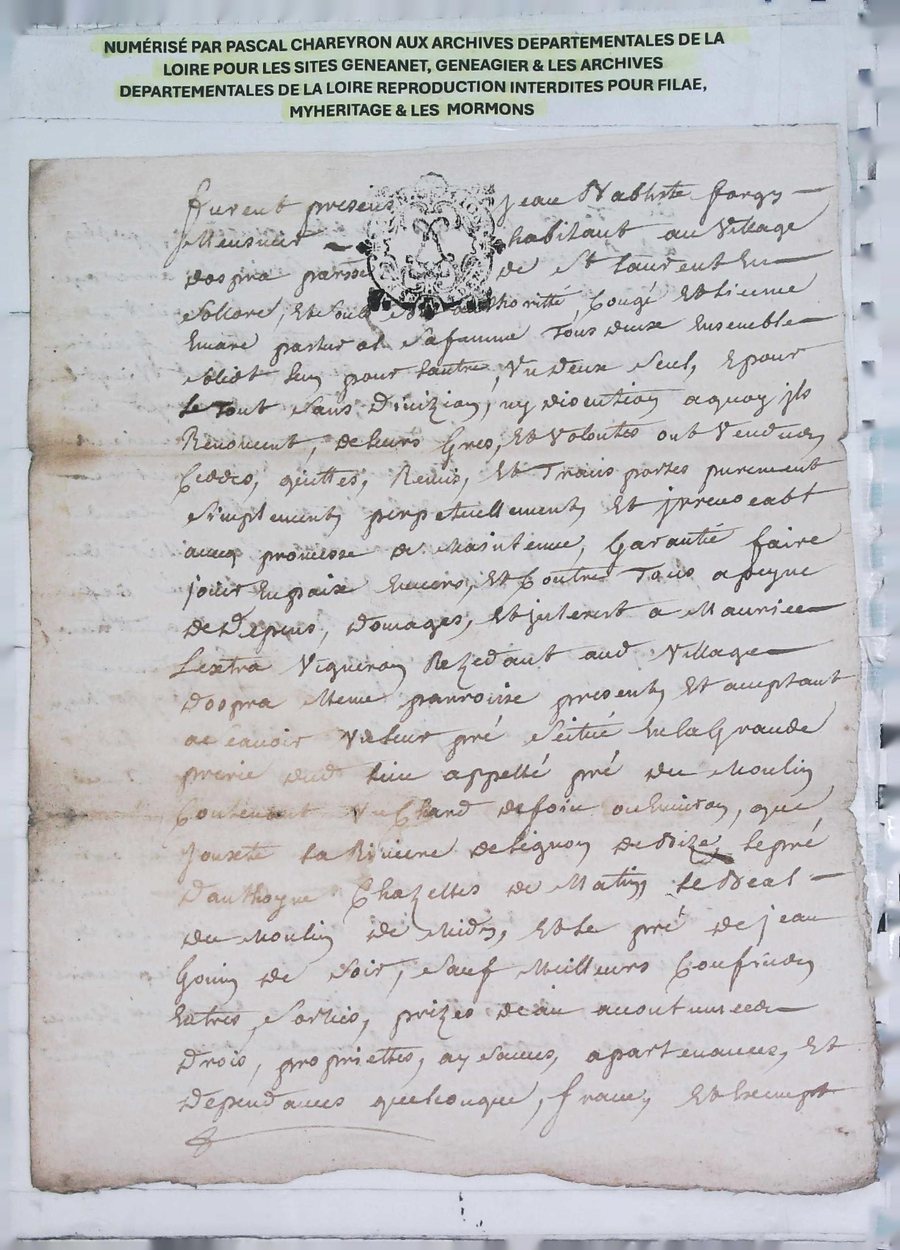 NUMÉRISÉ PAR PASCAL CHAREYRON AUX ARCHIVES DEPARTEMENTALES DE LA
LOIRE POUR LES SITES GENEANET, GENEAGIER & LES ARCHIVES
DEPARTEMENTALES DE LA LOIRE REPRODUCTION INTERDITES POUR FILAE,
MYHERITAGE & LES MORMONS
furent presens Jean Babtiste forgs
Meusnier habitant au Village
dospra de St Laurent En
Soliore, Et Soub authoritté, Congé Et
par Sa femme Tous deux Ensemble
Sollidt lun pour lautre, Vn deux Seul, Epour
le Tout Sans Divizion, ny disention aquoy jls
Renoncent, de leurs Grés, Et Volontés ont Vendun
Ceddés, quittés, Remis, Et Trans portes purement
Simplement perpetuellement Et jrrevocabt
avecq promesse de Maintenue, Garantie faire
jouir En paix Envers, Et Contre Tous a peyne
de Depens, Domages, Et jnterest a Maurice
Lextra Vigneron Rezedant aud Village
dospra Meme parroisse present Et aceptant
a Scavoir Vn leur pré Scitué En la Grande
prerie dud lieu appellé pré du Moulin
Contenant Vn Chard de foin ou Environ, que
Jouxte la Riviere de Lignon de Bize, le pré
d'anthoyne Chazelles de Matin, le Beal
du Moulin de Midy, Et le pré de jean
Gouin de Soir, Sauf Meilleurs Confinds
Entrés Sorties, prizes deau
Drois, proprietés, aysances, apartenances, Et
dependances quelconque, franc, Et Exempt